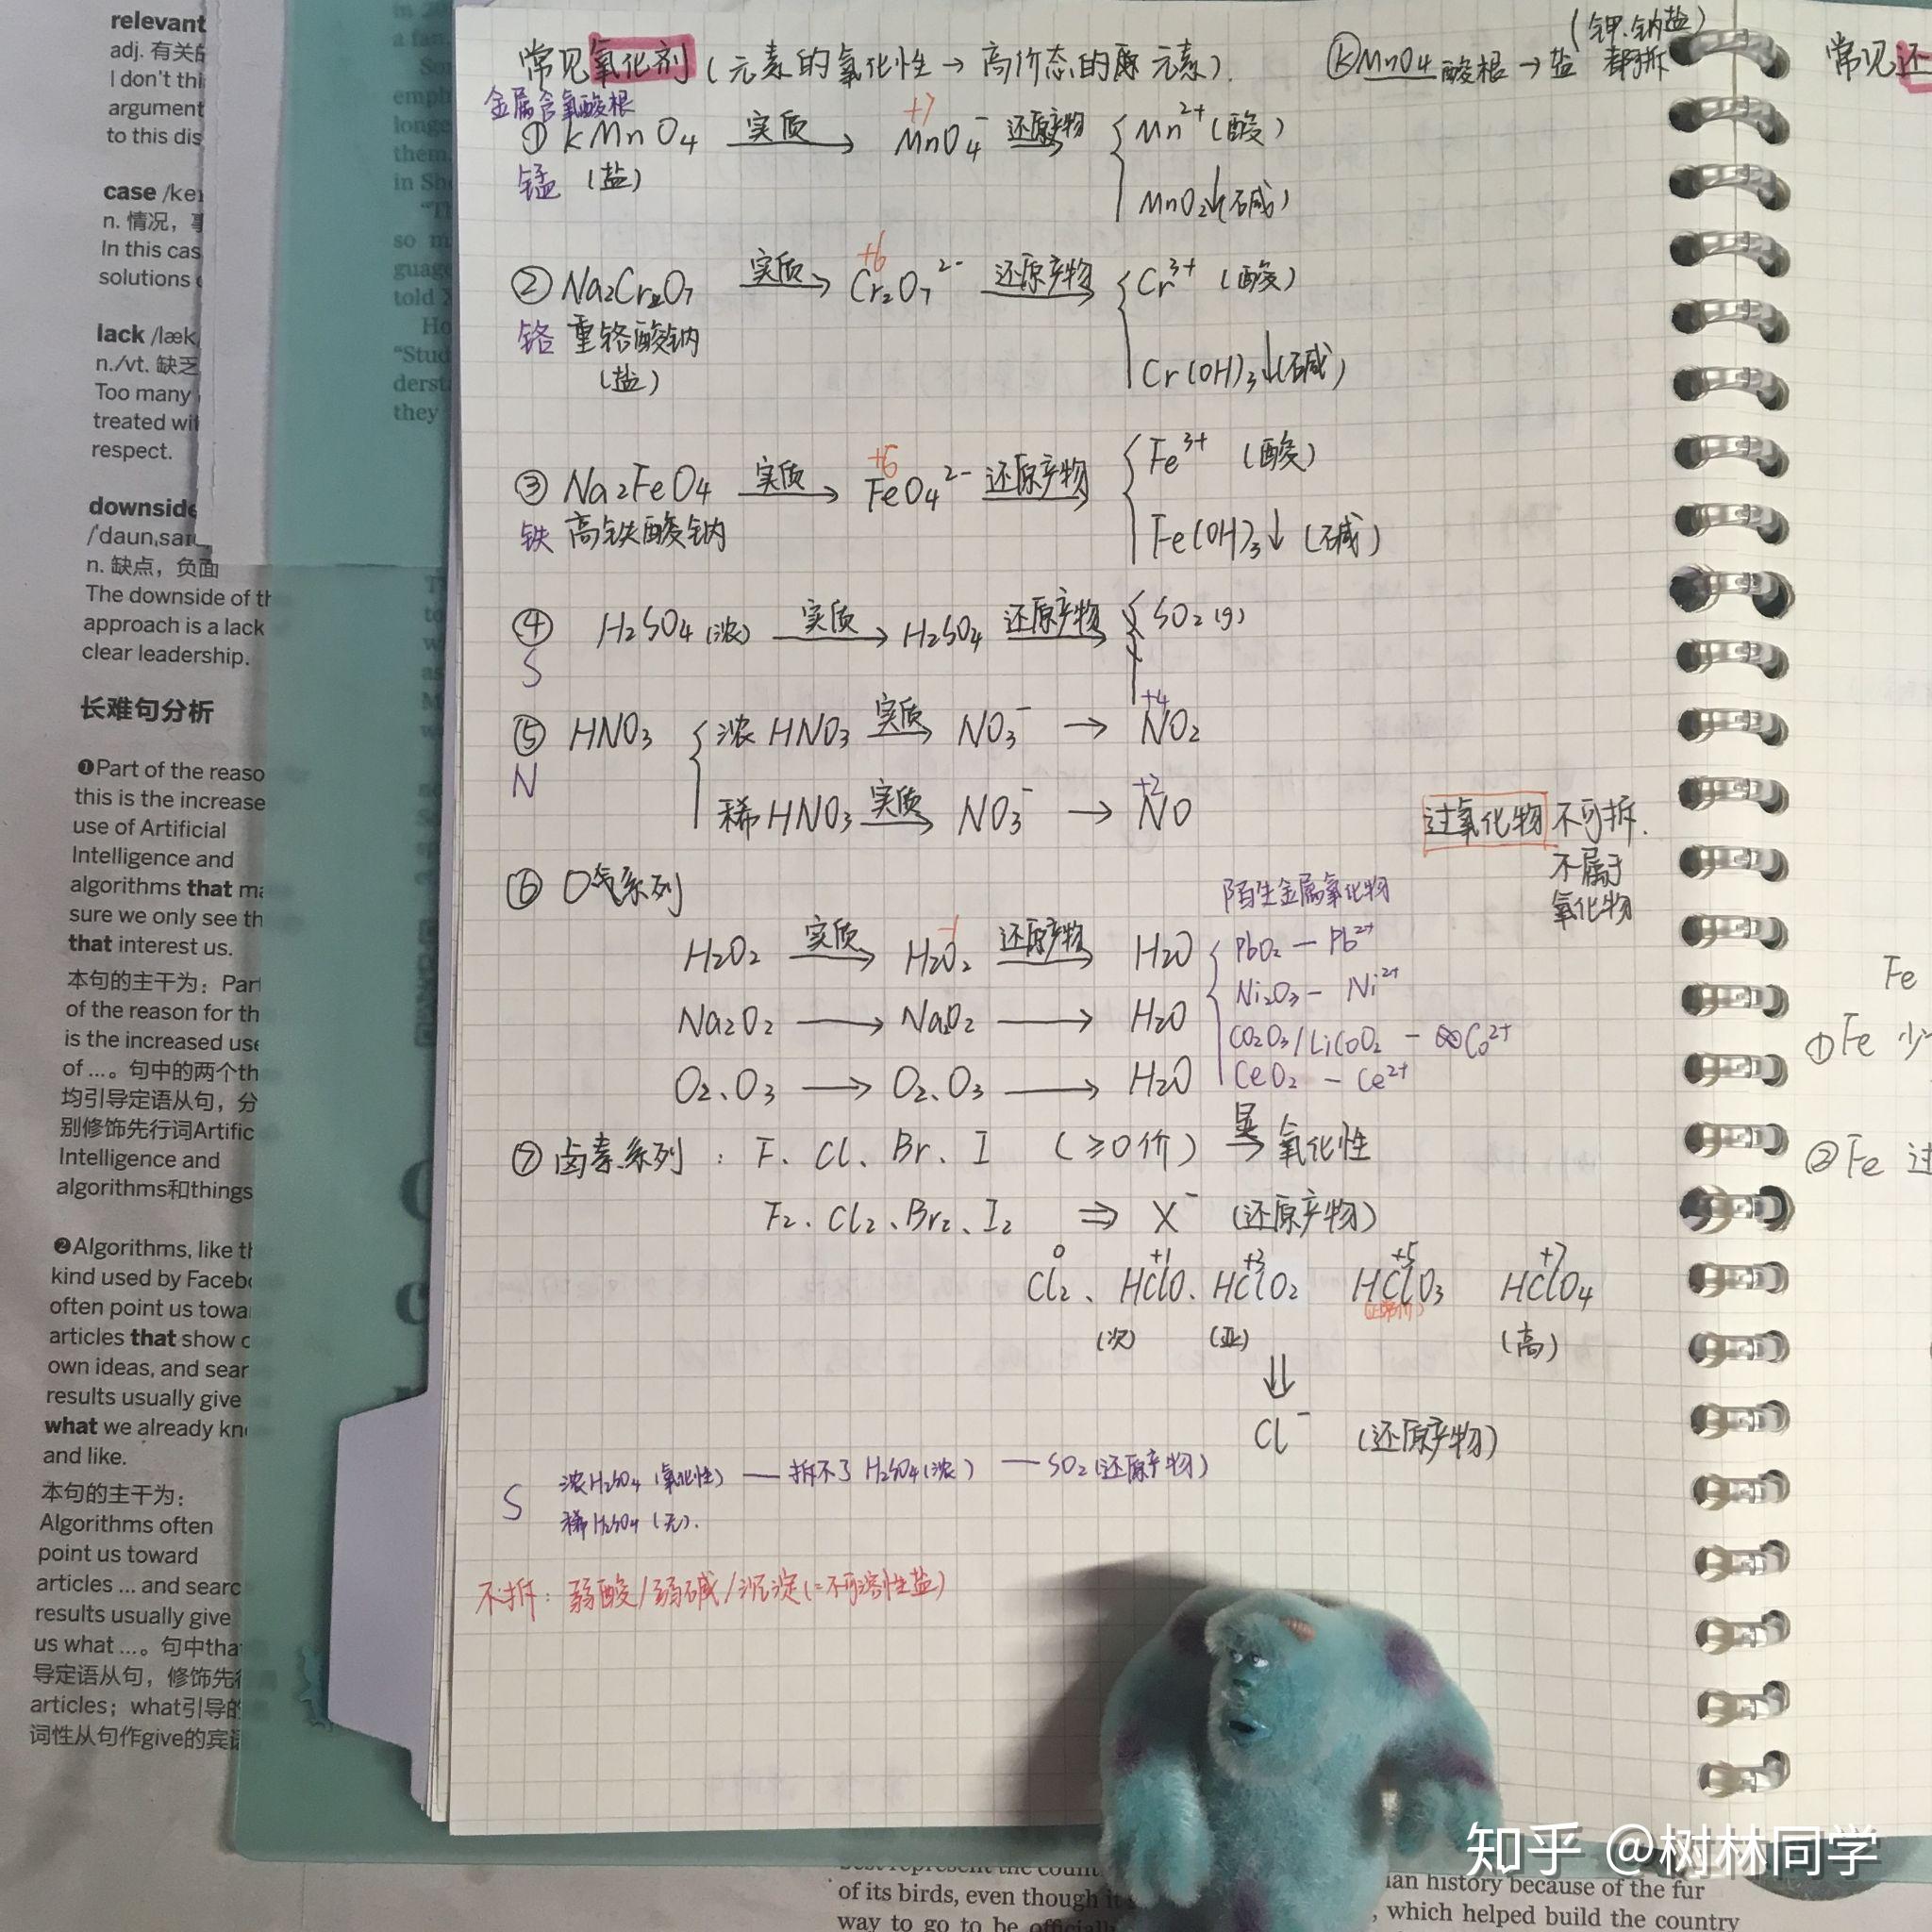 relevant
adj. 有关的
I don't thi
argument
to this dis
case /kei
n. 情况，
In this cas
solutions
lack /læk
n./vt. 缺乏
Too many
treated wit
respect.
downside
/ˈdaunˌsai
n. 缺点，负面
The downside of th
approach is a lack
clear leadership.
长难句分析
❶Part of the reaso
this is the increase
use of Artificial
Intelligence and
algorithms that ma
sure we only see th
that interest us.
本句的主干为：Part
of the reason for th
is the increased use
of ...。句中的两个th
均引导定语从句，分
别修饰先行词Artific
Intelligence and
algorithms和things
❷Algorithms, like th
kind used by Facebo
often point us towa
articles that show o
own ideas, and sear
results usually give
what we already kn
and like.
本句的主干为：
Algorithms often
point us toward
articles ... and searc
results usually give
us what ...。句中tha
导定语从句，修饰先行
articles；what引导的
词性从句作give的宾语
常见氧化剂（元素的氧化性→高价态的原元素）.
KMnO4 酸根→盐 都拆
（钾.钠盐）
金属含氧酸根
① KMnO4 实质→ +7 MnO4⁻ 还原产物 { Mn²⁺（酸）
锰 （盐） MnO2↓（碱）
② Na2Cr2O7 实质→ +6 Cr2O7²⁻ 还原产物→ { Cr³⁺（酸）
铬 重铬酸钠
（盐） Cr(OH)3↓（碱）
③ Na2FeO4 实质→ +6 FeO4²⁻ 还原产物→ { Fe³⁺（酸）
铁 高铁酸钠 Fe(OH)3↓（碱）
④ H2SO4（浓） 实质→ H2SO4 还原产物→ SO2(g)
S
⑤ HNO3 { 浓HNO3 实质→ NO3⁻ → +4 NO2
N 稀HNO3 实质→ NO3⁻ → +2 NO
过氧化物 不可拆.
不属于
氧化物
⑥ O气系列
陌生金属氧化物
H2O2 实质→ -1 H2O2 还原产物→ H2O { PbO2 — Pb²⁺
Ni2O3 — Ni²⁺
Na2O2 → Na2O2 → H2O
Co2O3/LiCoO2 — Co²⁺
O2、O3 → O2、O3 → H2O
CeO2 — Ce²⁺
⑦ 卤素系列： F、Cl、Br、I （≥0价） 显→ 氧化性
F2、Cl2、Br2、I2 ⇒ X⁻ （还原产物）
0 +1 +3 +5 +7
Cl2、HClO、HClO2 HClO3 HClO4
（正常价）
（次） （亚） （高）
⇓
Cl⁻ （还原产物）
S 浓H2SO4（氧化性）— 拆不了 H2SO4（浓） — SO2（还原产物）
稀H2SO4（无）.
不拆：弱酸/弱碱/沉淀（=不可溶性盐）
常见还
Fe
①Fe 少
②Fe 过
of its birds, even though it
way to go to be officially
ian history because of the fur
, which helped build the country
知乎 @树林同学